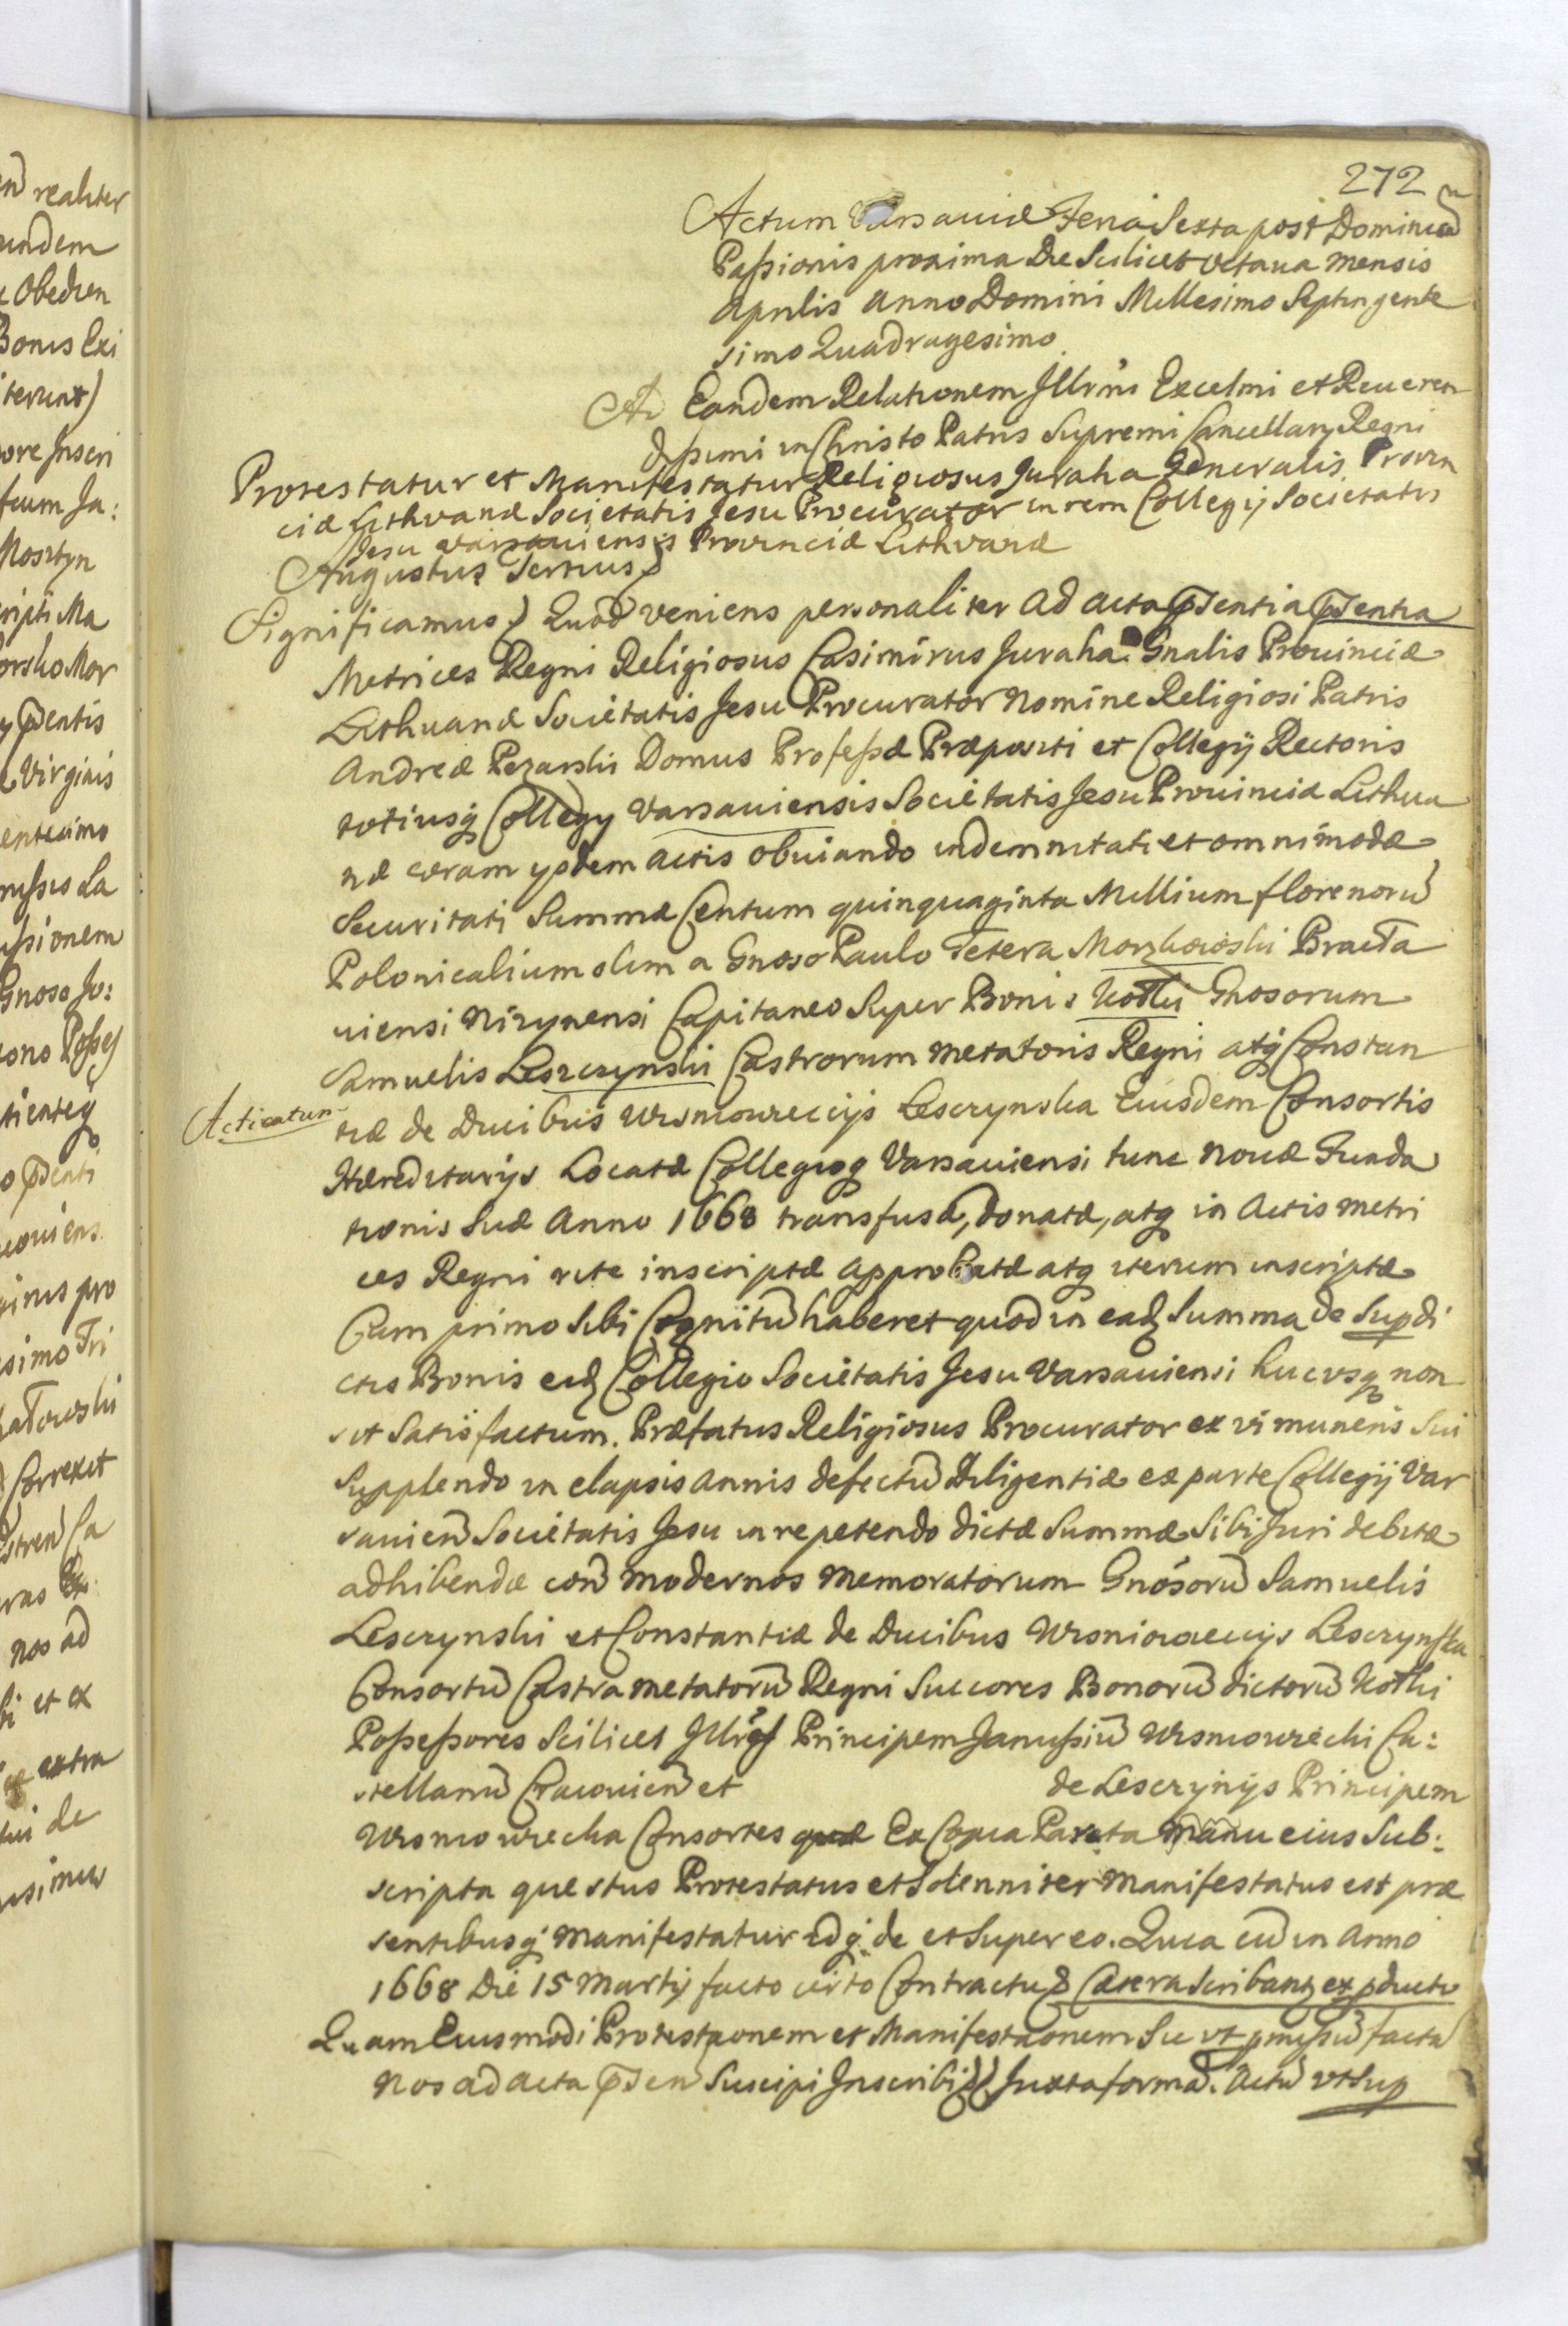 en realiter
undem
Obedien
Bonis Exi
terunt)
ore Inscri
feum Ja:
Mosztyn
cripti Ma
orsko Mor
y pñentis
Virginis
entesimo
nissis La
ussionem
Gnoso Jo:
ono Posses
tienteq
o pñenti
couiens.
ginus pro
simo Tri
atowski
Correxit
stren Ca
uras
nos ad
bi et ex
extra
tui de
ossimus
272
Actum Varsauiæ Feria Sexta post Dominicã
Passionis proxima Die Scilicet octaua mensis
Aprilis Anno Domini Millesimo Septingente
simo Quadragesimo
Ad Eandem Relationem Illrmi Excelmi et Reueren
dissimi in Christo Patris Supremi Cancellarij Regni
Protestatur et Manifestatur Religiosus Juraha Generalis Provin
ciæ Lithvanæ Societatis Jesu Procurator in rem Collegij Societatis
Jesu Varsauiensis Provinciæ Lithvanæ
Augustus Tertius
Significamus) Quod veniens personaliter ad acta pñsentia pñsentia
Metrices Regni Religiosus Casimirus Juraha Gnalis Prouinciæ
Lithuanæ Societatis Jesu Procurator Nomine Religiosi Patris
Andreæ Pezarski Domus Professæ Præpositi et Collegij Rectoris
totiusq Collegij Varsauiensis Societatis Jesu Prouinciæ Lithua
næ coram ijsdem actis obuiando indemnitati et omnimodæ
Securitati Summæ Centum quinquaginta Millium florenorũ
Polonicalium olim a Gnoso Paulo Tetera Morzkowski Bracta
uiensi Nizynensi Capitaneo Super Bonis Kotki Gnosorum
Samuelis Leszczynski Castrorum metatoris Regni atq Constan
Acticatum
tiæ de Ducibus Wisniowieccijs Lesczynska Eiusdem Consortis
Hæreditarijs Locatæ Collegioq Varsauiensi tunc Nouæ Funda
tionis Suæ Anno 1668 transfusæ, donatæ, atq in Actis metri
ces Regni rite inscriptæ approbatæ atq iterum inscriptæ
Cum primo Sibi Cognitũ haberet quod in eadem Summa de Supdi
ctis Bonis eidem Collegio Societatis Jesu Varsauiensi hucusq non
sit Satisfactum. Præfatus Religiosus Procurator ex vi muneris Sui
Supplendo in elapsis annis defectũ Diligentiæ ex parte Collegij Var
sauien Societatis Jesu in repetendo dictæ Summæ Sibi Juri debitæ
adhibendæ con modernos memoratorum Gnosorũ Samuelis
Lesczynski et Constantiæ de Ducibus Wisniowieccijs Lesczynska
Consortũ Castrametatorũ Regni Succores Bonorũ dictorũ Kotki
Possessores Scilicet Illres Principem Janussiũ Wisniowiecki Ca:
stellanũ Cracouien et de Lesczynijs Principem
Wisniowiecka Consortes Ex Copia Parata Manu eius Sub:
scripta questus Protestatus et Solenniter Manifestatus est præ
sentibusq Manifestatur Idq de et Super eo. Quia cũ in Anno
1668 Die 15 Martij facto certo Contractu Cætera Scribantur ex pducto
Quam Eiusmodi Protestaonem et Manifestaonem Sic vt pmissũ factã
nos ad acta pñsen Suscipi Inscribi Juxta formã. Actũ vt Sup